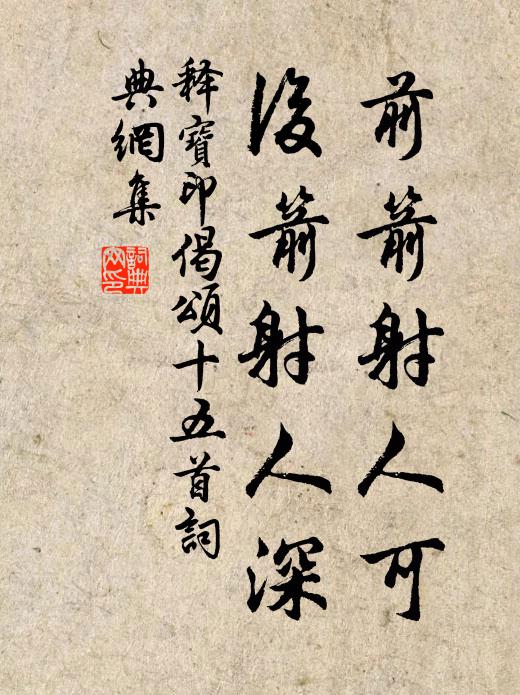 前箭射人可
後箭射人深
释寶印偈頌十五首詞
典網集
詞典